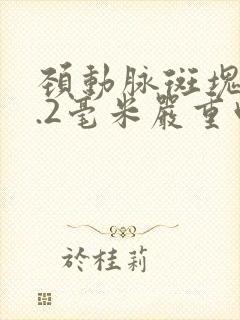 頚動脈斑塊
.2毫米嚴重
於桂莉